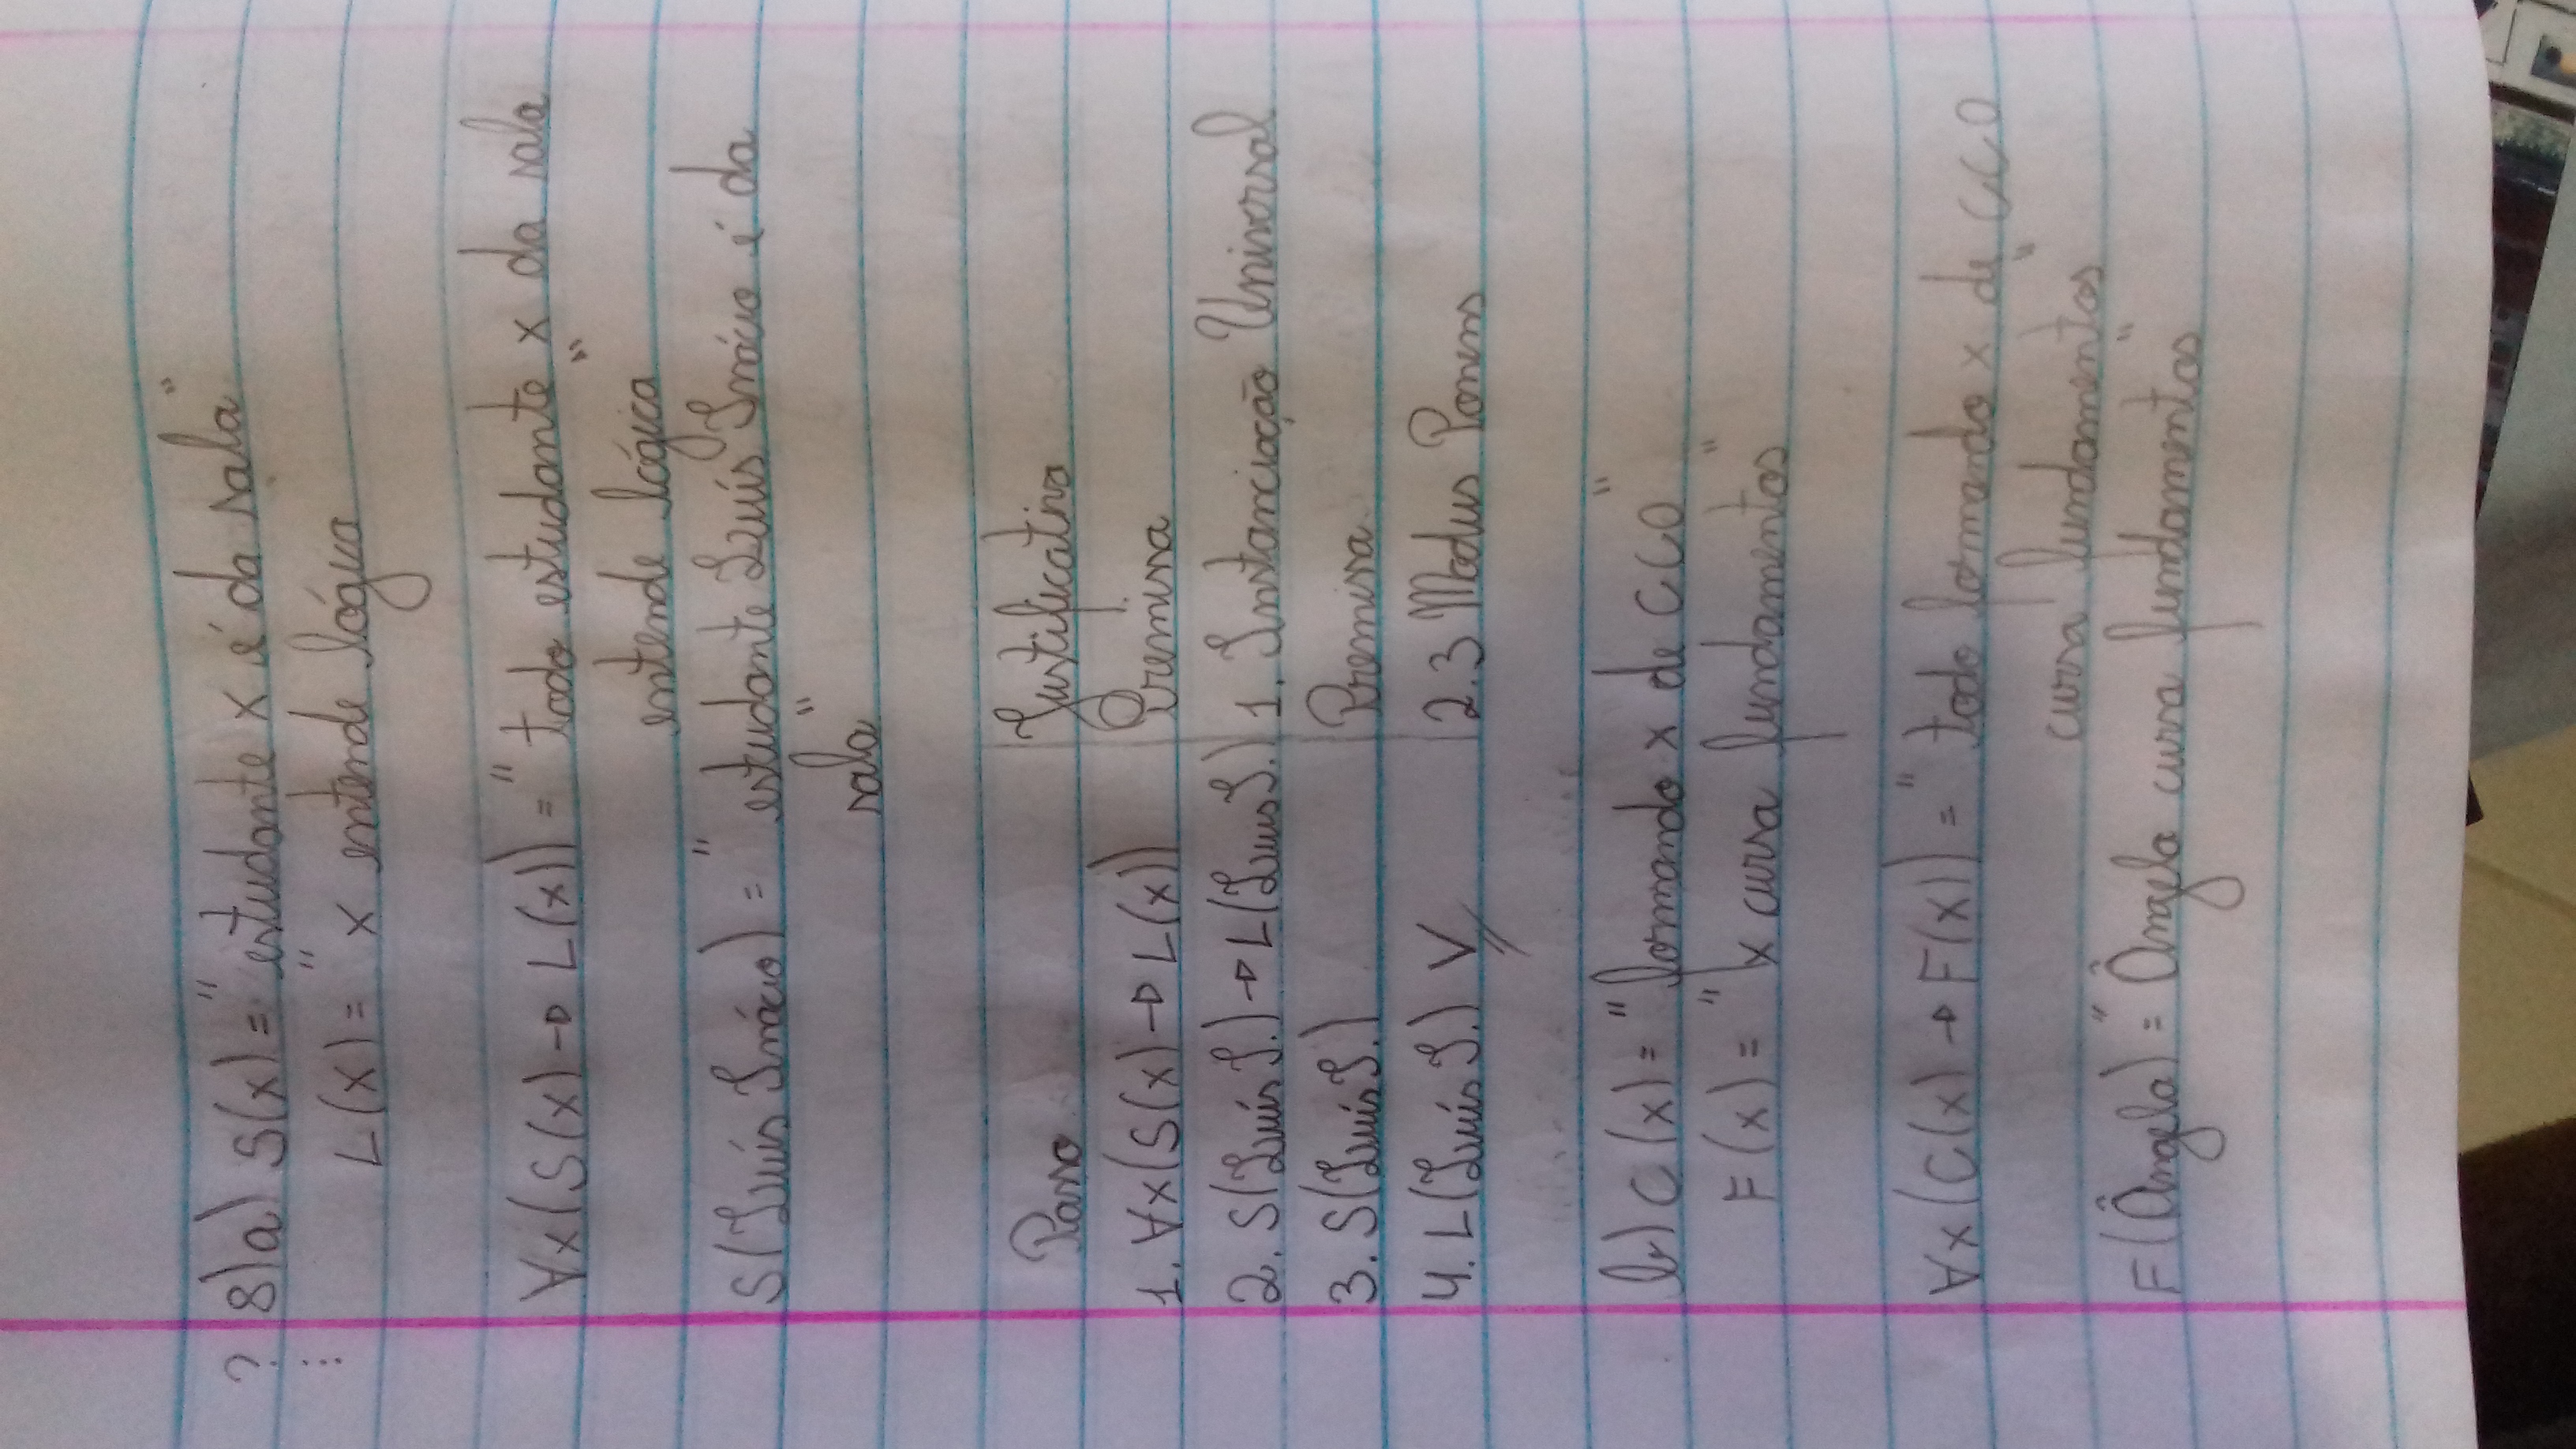 ? 8)a) S(x) = "estudante x é da sala"
⋮ L(x) = "x entende lógica
∀x(S(x) → L(x)) = "todo estudante x da sala
entende lógica"
S(Luís Inácio) = "estudante Luís Inácio é da
sala"
Passo Justificativa
1. ∀x(S(x) → L(x)) Premissa
2. S(Luís I.) → L(Luís I.) 1. Instanciação Universal
3. S(Luís I.) Premissa
4. L(Luís I.) V// 2.3 Modus Ponens
b) C(x) = "formando x de CCO"
F(x) = "x cursa fundamentos"
∀x(C(x) → F(x)) = "todo formando x de CCO
cursa fundamentos"
F(Ângela) = "Ângela cursa fundamentos"